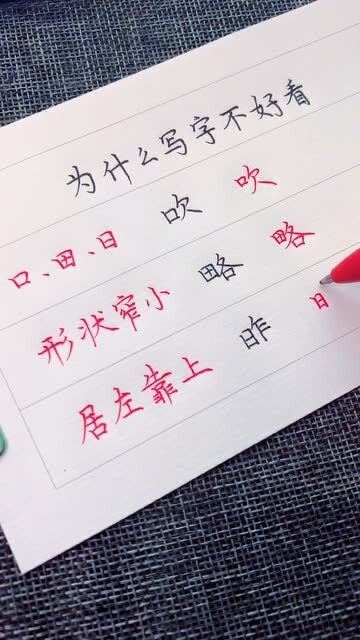 为什么写字不好看
口、田、日 吹 吹
形状窄小 略 略
居左靠上 昨 日